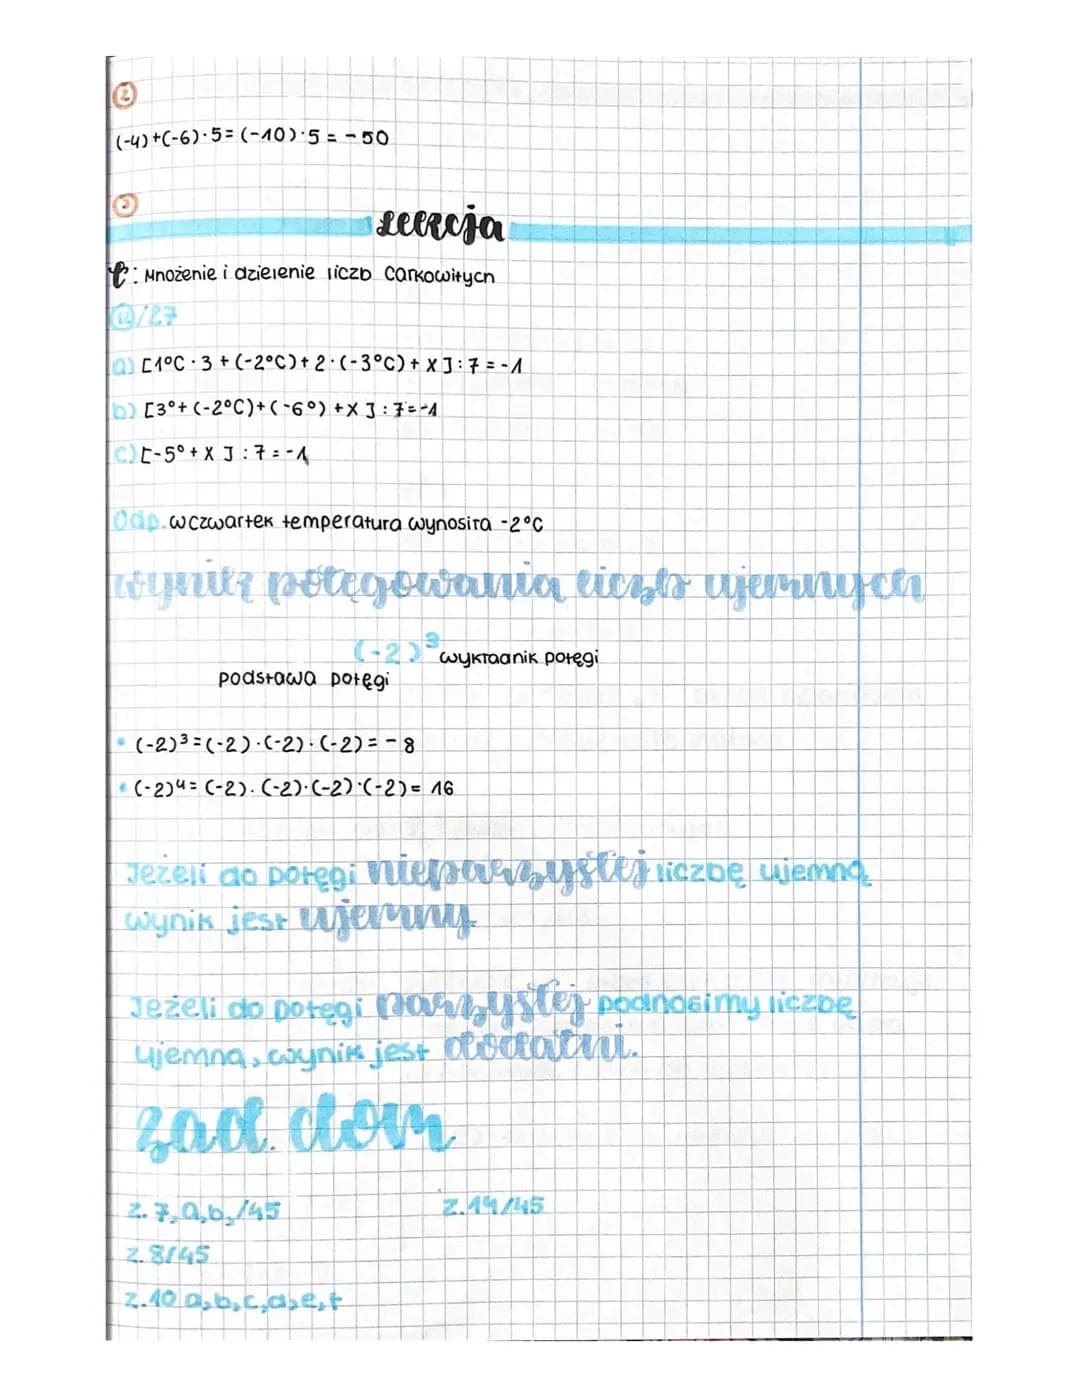 2
(-4)+(-6)·5=(-10)·5=-50
3
Lekcja
t: Mnożenie i dzielenie liczb całkowitych
12/27
a) [1°C·3+(-2°C)+2·(-3°C)+X]:7=-1
b) [3°+(-2°C)+(-6°)+X]:7=-1
c) [-5°+X]:7=-1
Odp. w czwartek temperatura wynosiła -2°C
wynik potęgowania liczb ujemnych
(-2)³ wykładnik potęgi
podstawa potęgi
• (-2)³=(-2)·(-2)·(-2)=-8
• (-2)⁴=(-2)·(-2)·(-2)·(-2)=16
Jeżeli do potęgi nieparzystej liczbę ujemną
wynik jest ujemny.
Jeżeli do potęgi parzystej podnosimy liczbę
ujemną, wynik jest dodatni.
zad. dom
z. 7, a,b,/45 z.14/45
z. 8/45
z.10 a,b,c,d,e,f